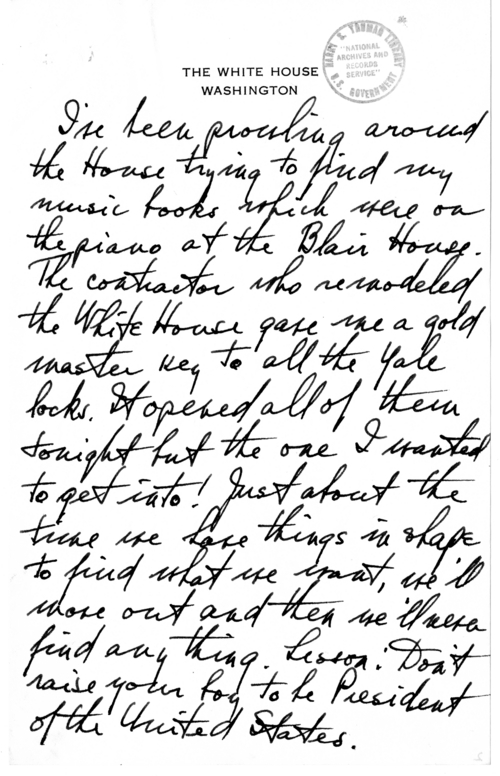 HARRY S. TRUMAN LIBRARY
"NATIONAL
ARCHIVES AND
RECORDS
SERVICE"
U.S. GOVERNMENT
THE WHITE HOUSE
WASHINGTON
I've been prowling around
the House trying to find my
music books which were on
the piano at the Blair House.
The contractor who remodeled
the White House gave me a gold
master key to all the Yale
locks. It opened all of them
tonight but the one I wanted
to get into! Just about the
time we have things in shape
to find what we want, we'll
move out and then we'll never
find any thing. Lesson: Don't
raise your boy to be President
of the United States.